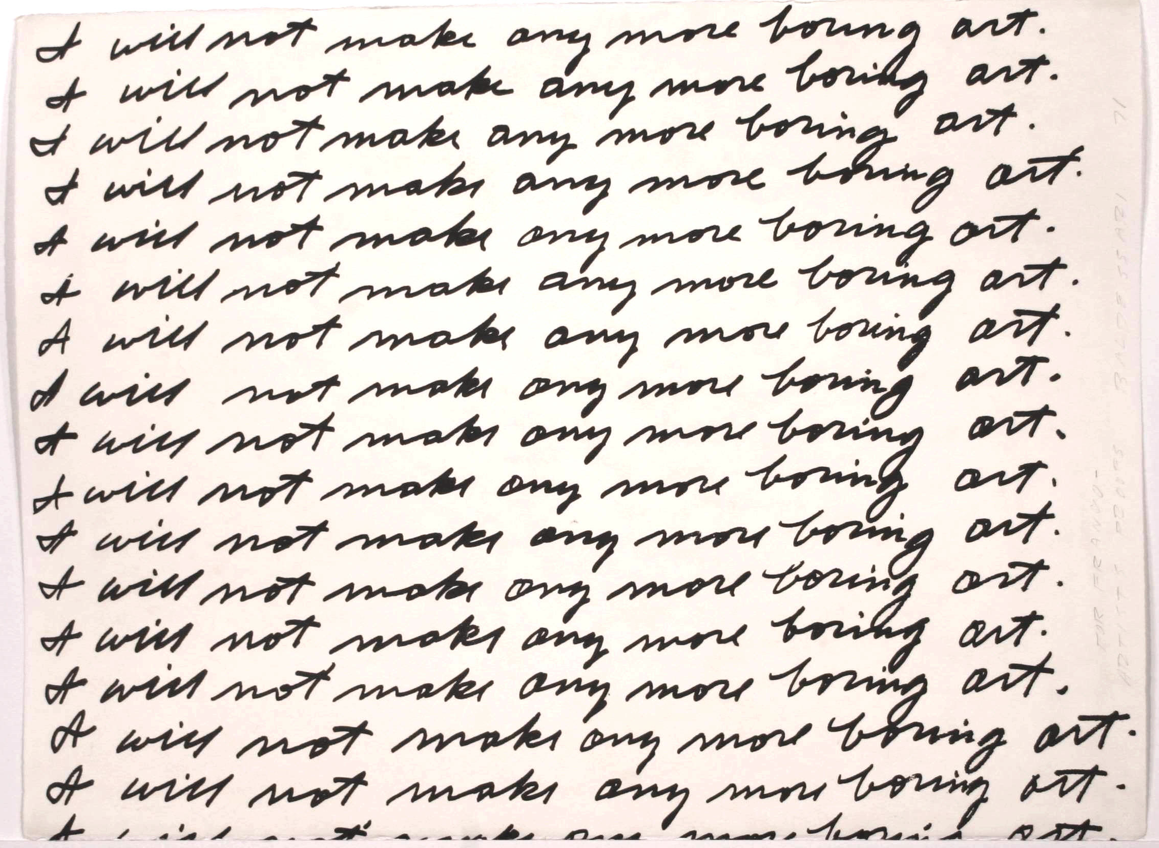 I will not make any more boring art.
I will not make any more boring art.
I will not make any more boring art.
I will not make any more boring art.
I will not make any more boring art.
I will not make any more boring art.
I will not make any more boring art.
I will not make any more boring art.
I will not make any more boring art.
I will not make any more boring art.
I will not make any more boring art.
I will not make any more boring art.
I will not make any more boring art.
I will not make any more boring art.
I will not make any more boring art.
I will not make any more boring art.
I will not make any more boring art.
FOR FERNANDO-
ARTIST'S PROOFS BALDESSARI 71